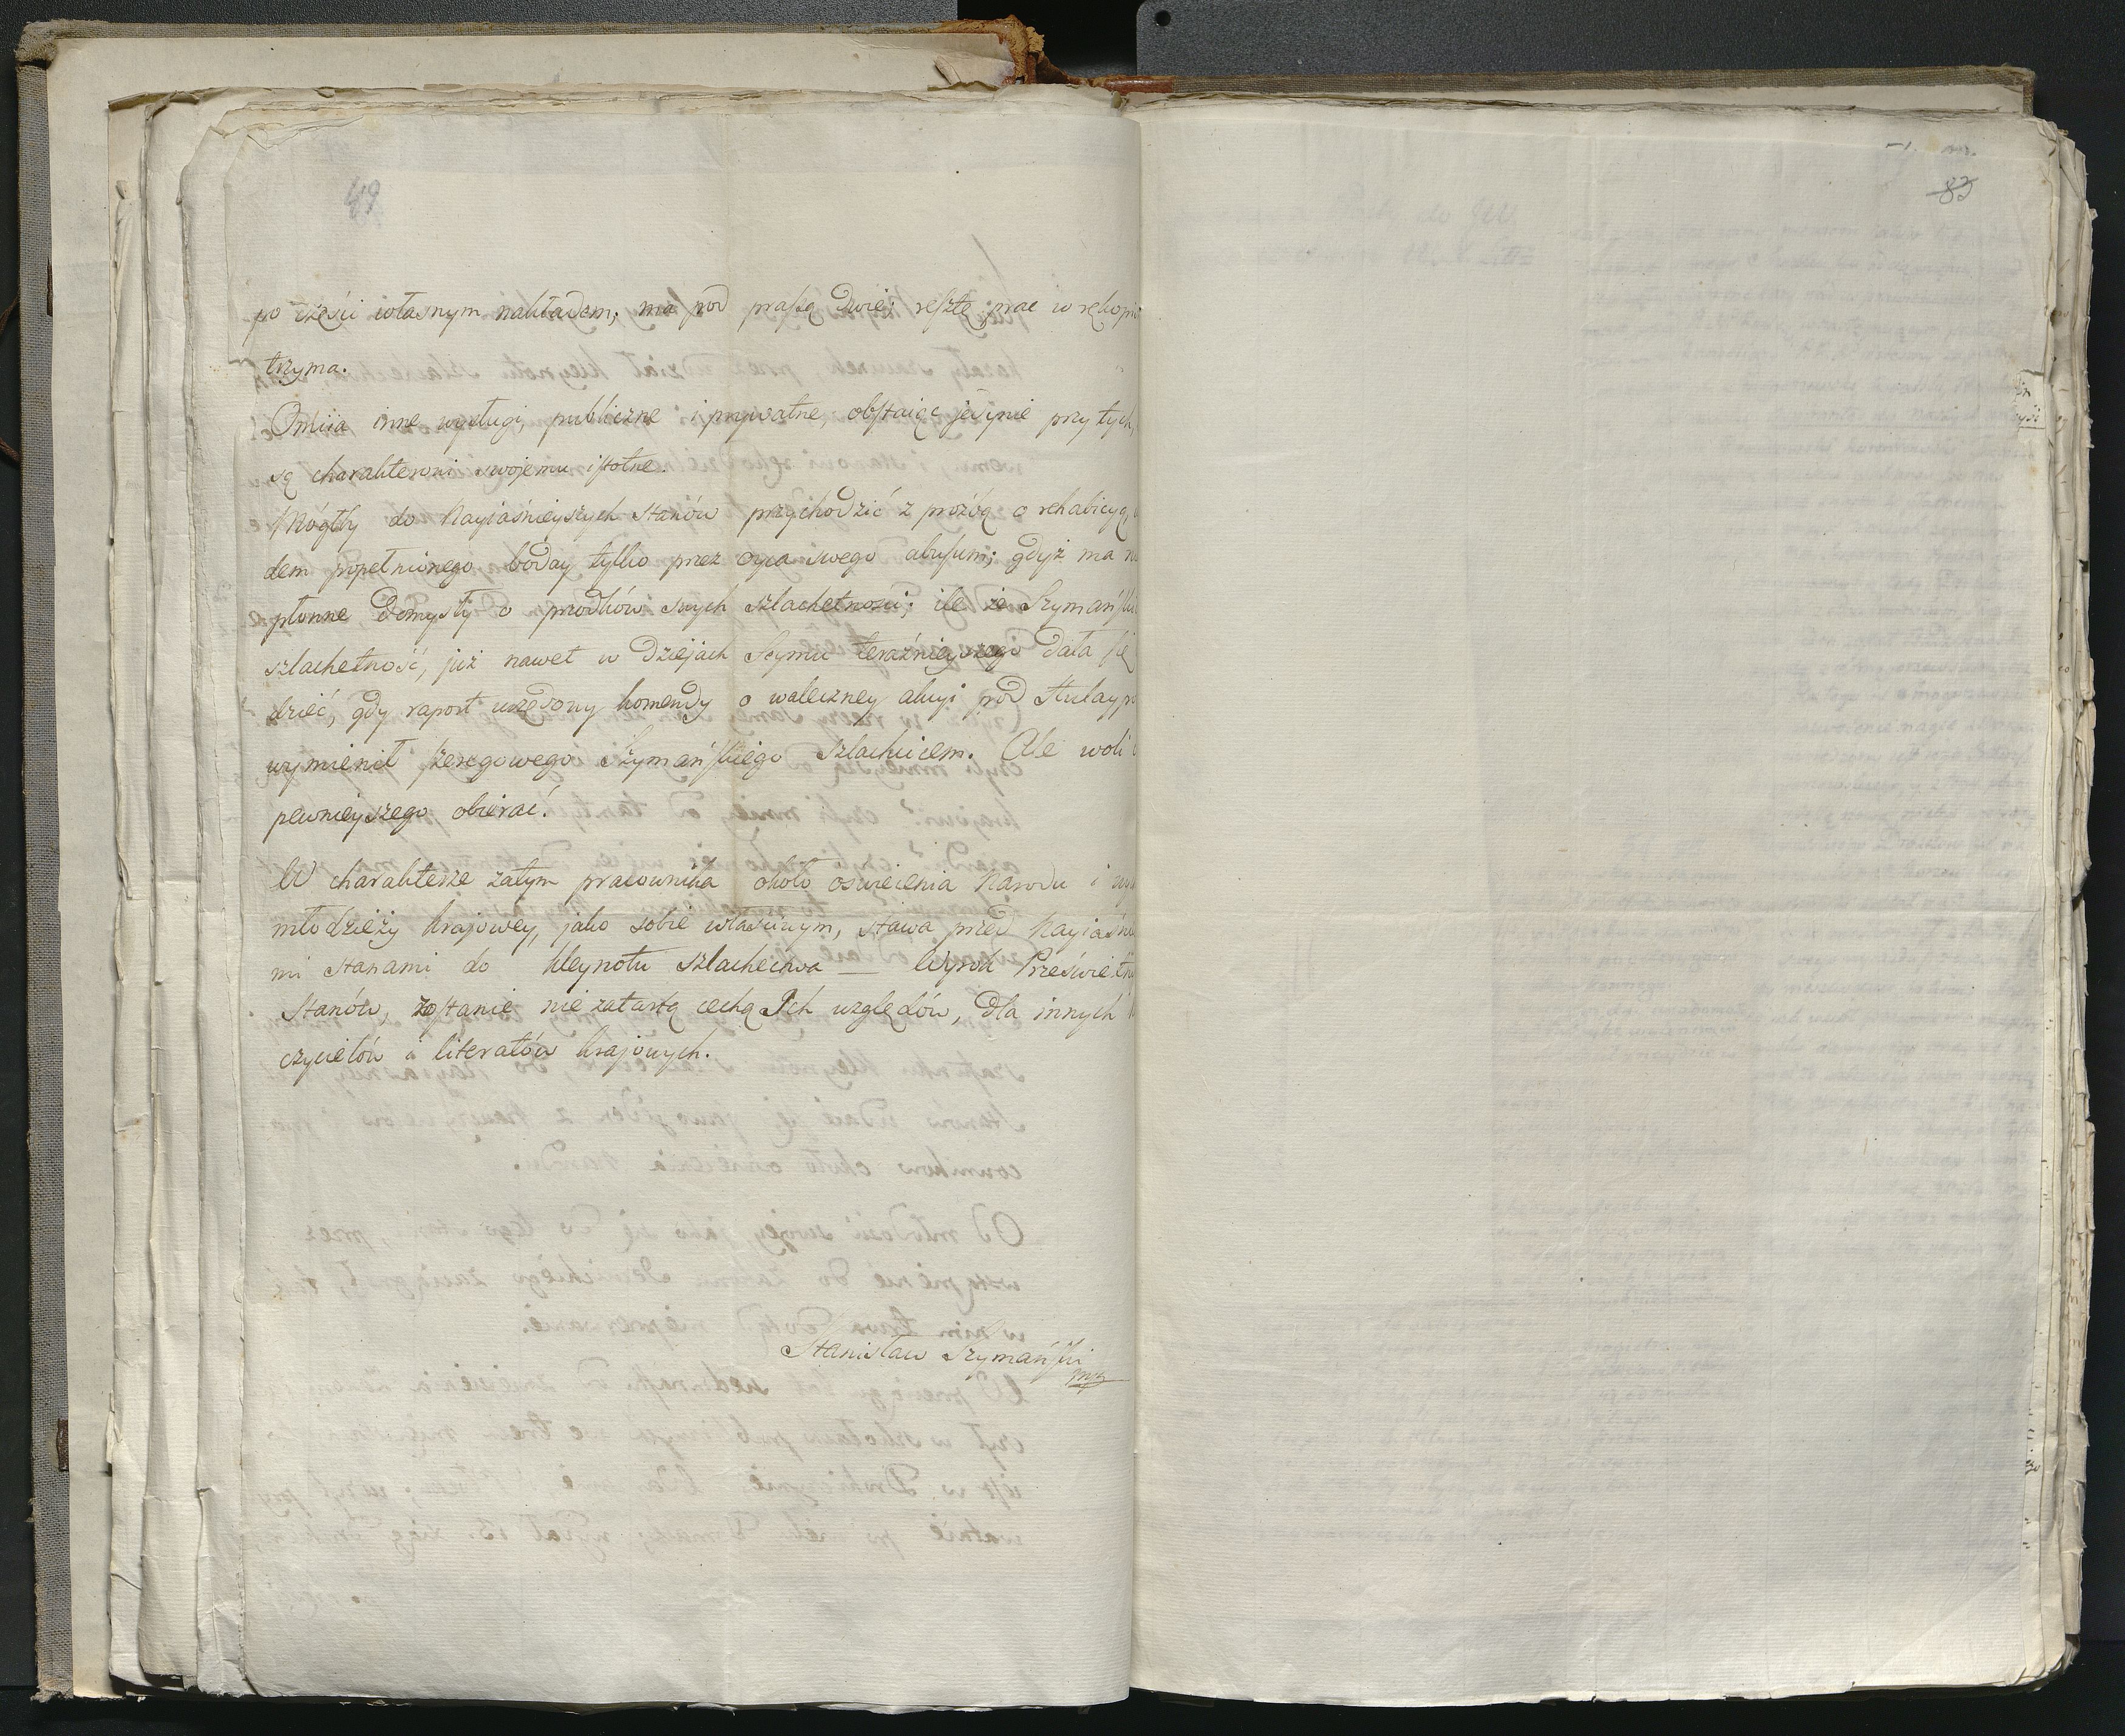 49
po części własnym nakładem; ma pod prassą dwie; resztę prac w rękopi
trzyma.
Omiia inne wysługi, publiczne i prywatne, obstaiąc jedynie przy tych,
są charakterowi swojemu istotne.
Mógłby do Nayiaśnieyszych Stanów przychodzić z prożbą o rehabicyą,
dem popełnionego boday tylko przez oyca swego abusum; gdyż ma n
płonne domysły o przodków swych szlachetności; ile że Szymańsk
szlachetność, już nawet w dziejach Seymu teraźnieyszego dała się
dzieć, gdy raport urzędowy komendy o waleczney akcyi pod
wymienił szeregowego Szymańskiego szlachcicem. Ale woli
pewnieyszego obierać.
W charakterze zatym pracownika około oświecenia Narodu i
młodzieży krajowey, jako sobie właściwym, stawa przed Nayiaśn
mi Stanami do kleynotu szlachectwa — Wyrok Prześwietn
Stanów, zostanie nie zatartą cechą Ich względów, dla innych
czycielów i literatów krajowych.
Stanisław Szymański
mp
83